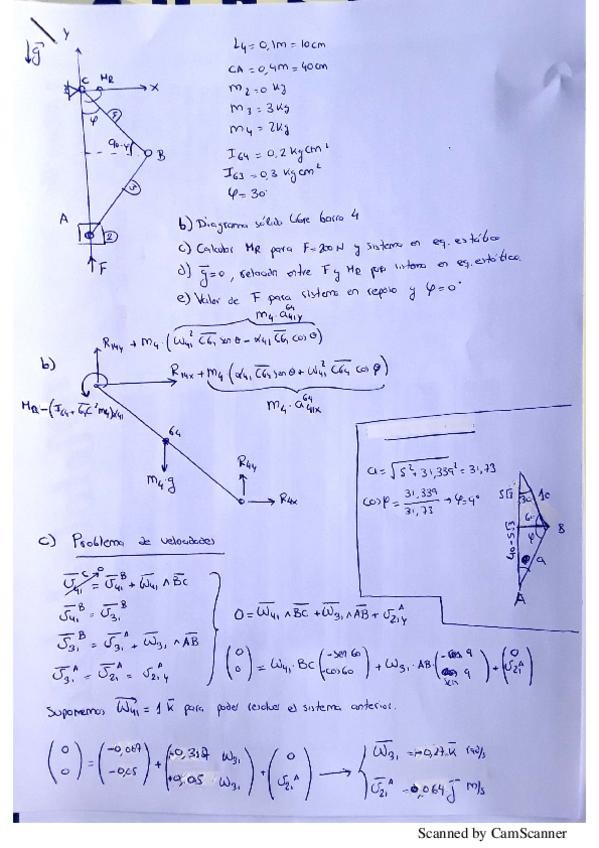 ḡ
Y
C
M_R
X
φ
4
90-φ
B
3
A
2
F
L₄ = 0,1m = 10cm
CA = 0,4m = 40cm
m₂ = 0 kg
m₃ = 3kg
m₄ = 2kg
I_G4 = 0,2 kgcm²
I_G3 = 0,3 kgcm²
φ = 30°
b) Diagrama sólido libre barra 4
c) Calcular M_R para F=200N y sistema en eq. estático
d) ḡ=0, relación entre F y M_R para sistema en eq. estático.
e) Valor de F para sistema en reposo y φ=0°
m₄·a₄₁y^G4
R₁₄y + m₄·(ω₄₁² CG₄ senθ - α₄₁ CG₄ cosθ)
b)
R₁₄x + m₄·(α₄₁ CG₄ senθ + ω₄₁² CG₄ cosφ)
m₄·a₄₁x^G4
G4
m₄·g
R₄y
R₄x
a = √(5² + 31,339²) = 31,73
cosφ = 31,339 / 31,73 → φ=9°
5√3
30
10
60
B
φ
40-5√3
a
A
c) Problema de velocidades
v̄₄₁^C = v̄₄₁^B + ω̄₄₁ ∧ BC
v̄₄₁^B = v̄₃₁^B
v̄₃₁^B = v̄₃₁^A + ω̄₃₁ ∧ AB
v̄₃₁^A = v̄₂₁^A = v₂₁y^A
0 = ω̄₄₁ ∧ BC + ω̄₃₁ ∧ AB + v₂₁y^A
(0 0) = ω₄₁·BC (-sen60 -cos60) + ω₃₁·AB + (0 v₂₁^A)
Suponemos ω̄₄₁ = 1 k̄ para poder resolver el sistema anterior.
(0 0) = (-0,087 -0,05) + (-0,317 ω₃₁ +0,05 ω₃₁) + (0 v₂₁^A) →
ω̄₃₁ = -0,27 k̄ rad/s
v̄₂₁^A = 0,064 j̄ m/s
Scanned by CamScanner